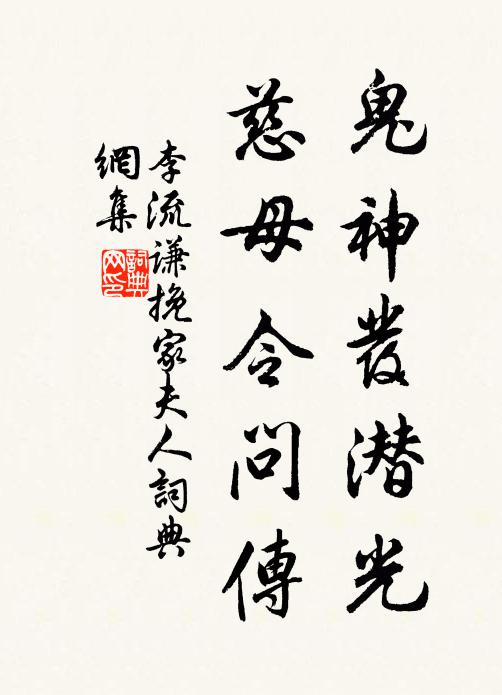 鬼神發潜光
慈母令問傳
李流谦挽家夫人詞典
網集
詞典
网印